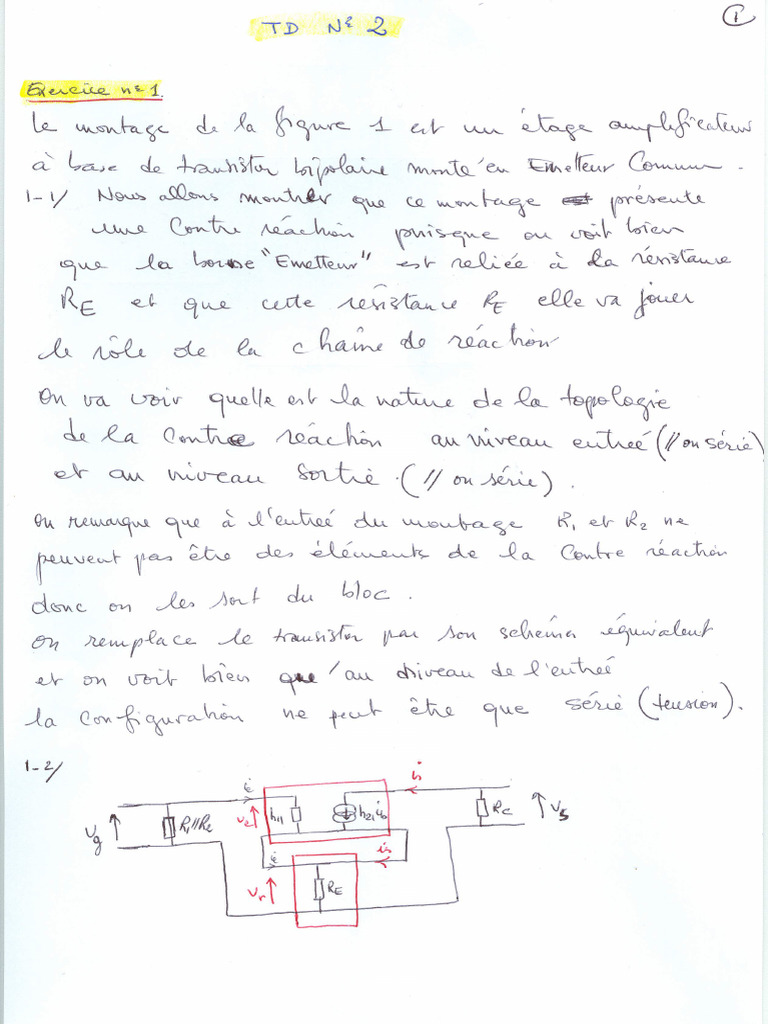 1
TD N° 2
Exercice n° 1.
Le montage de la figure 1 est un étage amplificateur
à base de transistor bipolaire monté en Emetteur Commun.
1-1/ Nous allons montrer que ce montage présente
une Contre réaction puisque on voit bien
que la borne "Emetteur" est reliée à la résistance
RE et que cette résistance RE elle va jouer
le rôle de la chaîne de réaction
On va voir quelle est la nature de la topologie
de la Contre réaction au niveau entrée (// ou série)
et au niveau sortie. (// ou série).
On remarque que à l'entrée du montage R1 et R2 ne
peuvent pas être des éléments de la Contre réaction
donc on les sort du bloc.
On remplace le transistor par son schéma équivalent
et on voit bien qu'au niveau de l'entrée
la configuration ne peut être que série (tension).
1-2/
ie is
vg R1//R2 ve h11 h21ib RC vs
ie is
vr RE